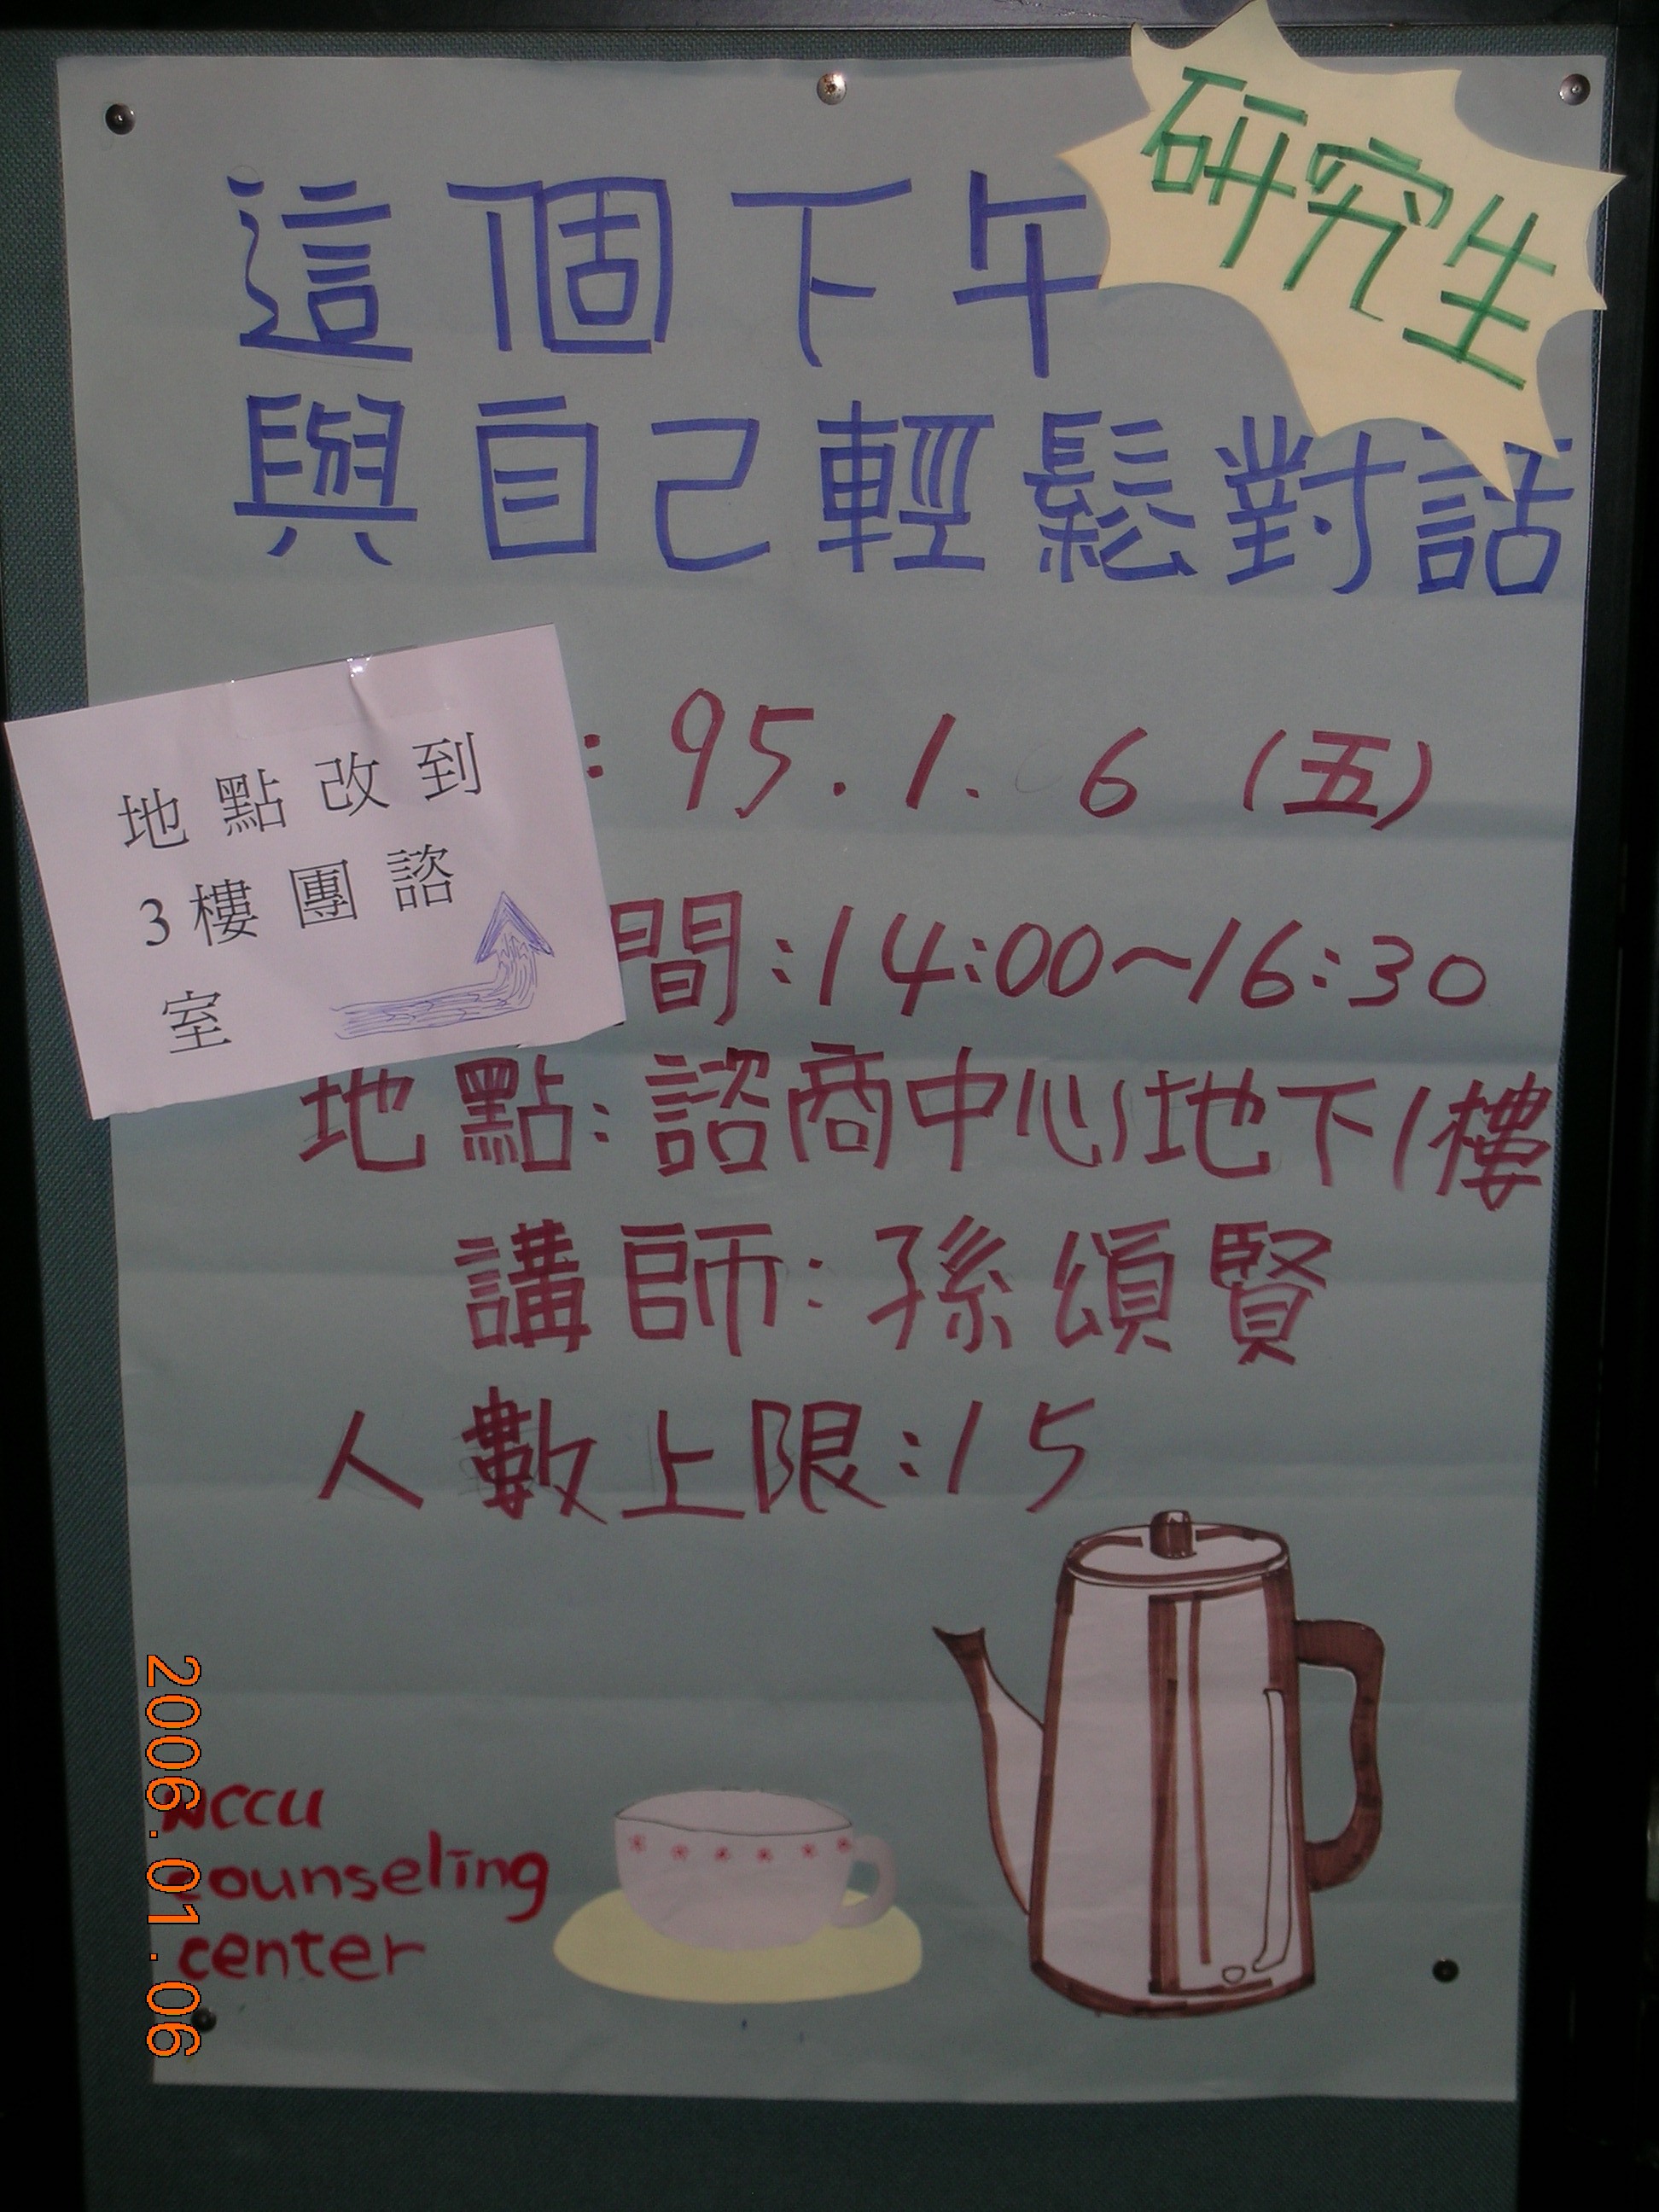 研究生
這個下午
與自己輕鬆對話
: 95.1.6 (五)
間:14:00~16:30
地點改到
3樓團諮
室
地點:諮商中心地下1樓
講師:孫頌賢
人數上限:15
NCCU
counseling
center
2006.01.06